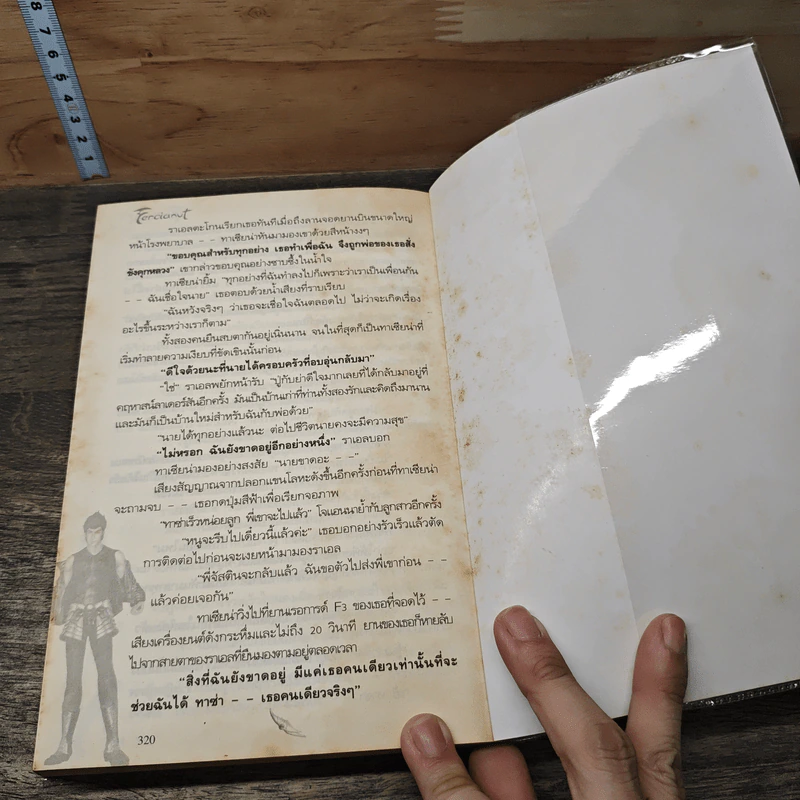 8 7 6 5 4 3 2 1
Fercianut
ราเอลตะโกนเรียกเธอทันทีเมื่อถึงลานจอดยานบินขนาดใหญ่
หน้าโรงพยาบาล – – ทาเซียน่าหันมามองเขาด้วยสีหน้างงๆ
"ขอบคุณสำหรับทุกอย่าง เธอทำเพื่อฉัน จึงถูกพ่อของเธอสั่ง
ขังคุกหลวง" เขากล่าวขอบคุณอย่างซาบซึ้งในน้ำใจ
ทาเซียน่ายิ้ม "ทุกอย่างที่ฉันทำลงไปก็เพราะว่าเราเป็นเพื่อนกัน
– – ฉันเชื่อใจนาย" เธอตอบด้วยน้ำเสียงที่ราบเรียบ
"ฉันหวังจริงๆ ว่าเธอจะเชื่อใจฉันตลอดไป ไม่ว่าจะเกิดเรื่อง
อะไรขึ้นระหว่างเราก็ตาม"
ทั้งสองคนยืนสบตากันอยู่เนิ่นนาน จนในที่สุดก็เป็นทาเซียน่าที่
เริ่มทำลายความเงียบที่ขัดเขินนั้นก่อน
"ดีใจด้วยนะที่นายได้ครอบครัวที่อบอุ่นกลับมา"
"ใช่" ราเอลพยักหน้ารับ "ปู่กับย่าดีใจมากเลยที่ได้กลับมาอยู่ที่
คฤหาสน์ลาเตอร์สันอีกครั้ง มันเป็นบ้านเก่าที่ท่านทั้งสองรักและคิดถึงมานาน
และมันก็เป็นบ้านใหม่สำหรับฉันกับพ่อด้วย"
"นายได้ทุกอย่างแล้วนะ ต่อไปชีวิตนายคงจะมีความสุข"
"ไม่หรอก ฉันยังขาดอยู่อีกอย่างหนึ่ง" ราเอลบอก
ทาเซียน่ามองอย่างสงสัย "นายขาดอะ – –"
เสียงสัญญาณจากปลอกแขนโลหะดังขึ้นอีกครั้งก่อนที่ทาเซียน่า
จะถามจบ – – เธอกดปุ่มสีฟ้าเพื่อเรียกจอภาพ
"ทาซ่าเร็วหน่อยลูก พี่เขาจะไปแล้ว" โจแอนนาย้ำกับลูกสาวอีกครั้ง
"หนูจะรีบไปเดี๋ยวนี้แล้วค่ะ" เธอบอกอย่างรัวเร็วแล้วตัด
การติดต่อไปก่อนจะเงยหน้ามามองราเอล
"พี่จัสตินจะกลับแล้ว ฉันขอตัวไปส่งพี่เขาก่อน – –
แล้วค่อยเจอกัน"
ทาเซียน่าวิ่งไปที่ยานเรอการ์ด์ F3 ของเธอที่จอดไว้ – –
เสียงเครื่องยนต์ดังกระหึ่มและไม่ถึง 20 วินาที ยานของเธอก็หายลับ
ไปจากสายตาของราเอลที่ยืนมองตามอยู่ตลอดเวลา
"สิ่งที่ฉันยังขาดอยู่ มีแค่เธอคนเดียวเท่านั้นที่จะ
ช่วยฉันได้ ทาซ่า – – เธอคนเดียวจริงๆ"
320